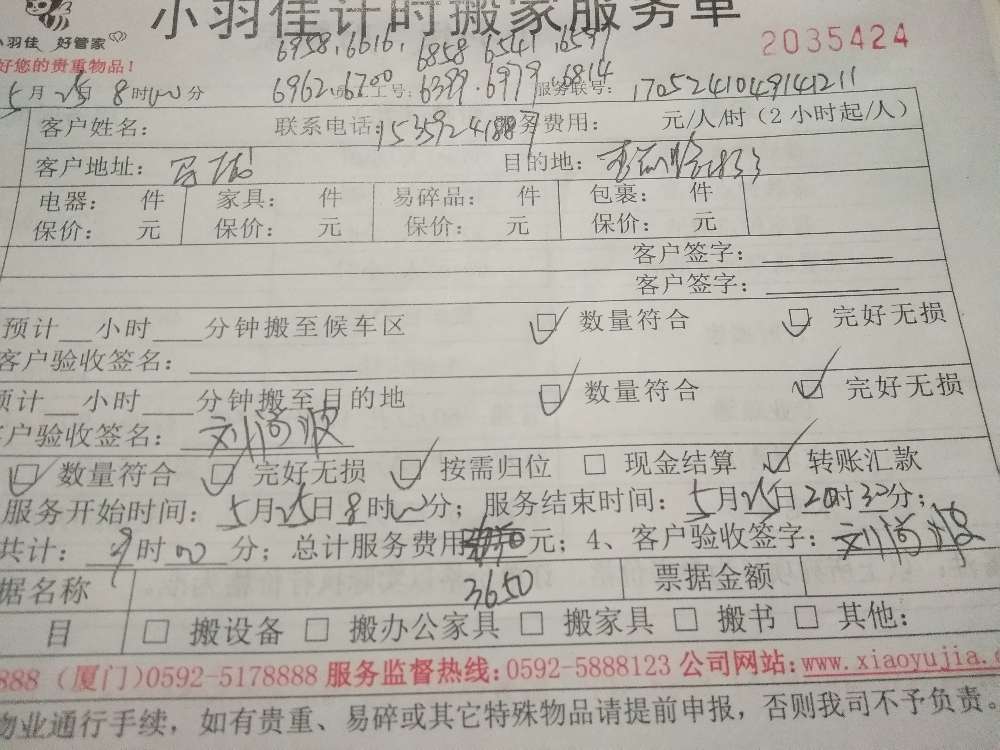 小羽佳计时搬家服务单
小羽佳 好管家
2035424
好您的贵重物品！
6958.6616.6858 6541.6597
6962.6700 工号：6399.6979.6814 服务联号：1705241049141211
5月25日8时00分
客户姓名： 联系电话：15359241887 务费用： 元/人/时（2小时起/人）
客户地址： 目的地：
电器： 件 家具： 件 易碎品： 件 包裹： 件
保价： 元 保价： 元 保价： 元 保价： 元
客户签字：
客户签字：
预计__小时___分钟搬至候车区 ☑ 数量符合 ☑ 完好无损
客户验收签名：
预计__小时___分钟搬至目的地 ☑ 数量符合 ☑ 完好无损
客户验收签名：
☑ 数量符合 ☑ 完好无损 ☑ 按需归位 □ 现金结算 ☑ 转账汇款
服务开始时间：5月25日8时00分；服务结束时间：5月25日20时30分；
共计：9时00分；总计服务费用 元；4、客户验收签字：
3650
据名称 票据金额
目 □ 搬设备 □ 搬办公家具 □ 搬家具 □ 搬书 □ 其他：
888（厦门）0592-5178888 服务监督热线：0592-5888123 公司网站：www.xiaoyujia.c
物业通行手续，如有贵重、易碎或其它特殊物品请提前申报，否则我司不予负责。